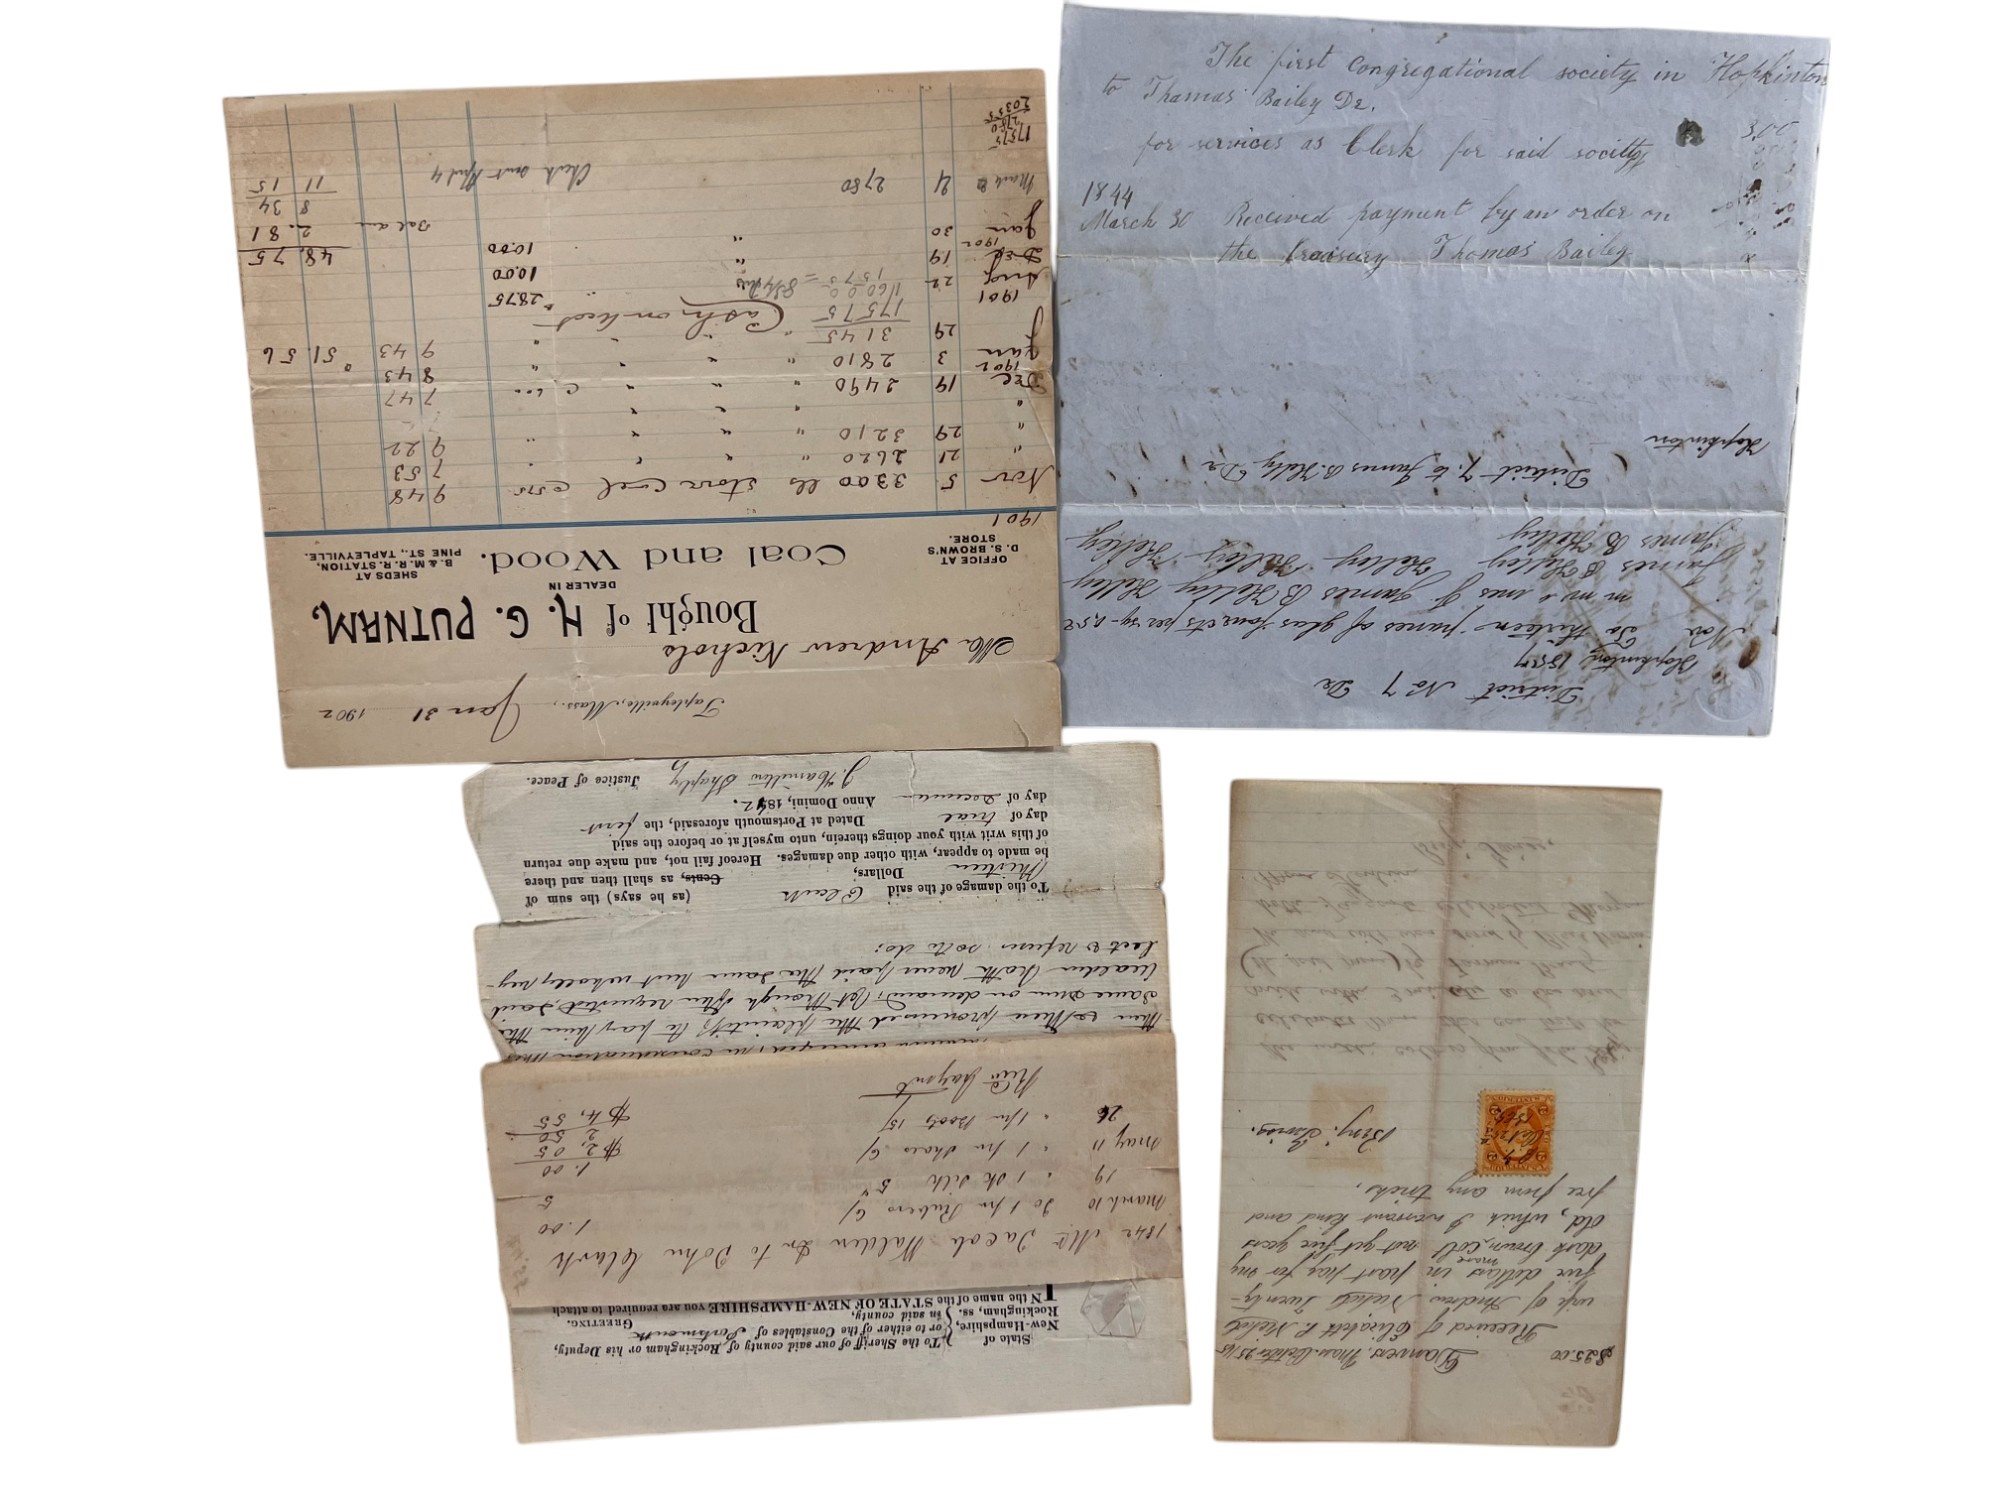 The first Congregational society in Hopkinton
to Thomas Bailey Dr.
for services as Clerk for said society 3.00
1844
March 30 Received payment by an order on
the treasury Thomas Bailey
District No 7 Dr
Hopkinton 1857
Nov To thirteen panes of glas four cts per sq - 0,52
James B Kelley Kelley
James B Kelley Kelley Kelley Kelley
James B Kelley
District 7. to James B. Kelly Dr
Hopkinton
Tapleyville, Mass., Jan 31 1902
Mr Andrew Nichols
Bought of H. G. PUTNAM,
DEALER IN
OFFICE AT
D. S. BROWN'S
STORE.
Coal and Wood.
SHEDS AT
B. & M. R. R. STATION,
PINE ST., TAPLEYVILLE.
1901
Nov 5 3300 lbs stove coal 575 9 48
" 21 2620 " " " " 7 53
" 29 3210 " " " " 9 22
Dec 19 2490 " " " 6.00 7 47
1902
Jan 3 2810 " " " " 8 43
" 29 3145 " " " " 9 43 51.56
17575 Cash on acct
1901 28.75
Aug 22 " 10.00
Dec 19 " 10.00 48.75
1902
Jan 30 " Balance 2.81
8 34
March 4 2780 Check sent April 4 11 15
17575
2780
20355
State of
New-Hampshire,
Rockingham, ss.
To the Sheriff of our said county of Rockingham or his Deputy,
or to either of the Constables of Portsmouth
in said county, GREETING.
IN the name of the STATE OF NEW-HAMPSHIRE you are required to attach
1842 Mr Jacob Walden Dr to John Clark
March 10 To 1 pr Rubers 6/ 1.00
19 " 1 sk silk 5
May 11 " 1 pr shoes 6/ 1.00
$2,05
26 " 1 pr Boots 15/ 2,50
$4,55
Recd paymt
then & there promised the plaintiff to pay him the
same sum on demand; Yet though often requested, said
Walden hath never paid the same but wholly neg-
lects & refuses so to do;
To the damage of the said Clark (as he says) the sum of
thirteen Dollars, Cents, as shall then and there
be made to appear, with other due damages. Hereof fail not, and make due return
of this writ with your doings therein, unto myself at or before the said
day of trial Dated at Portsmouth aforesaid, the first
day of December Anno Domini, 1842.
J. Hamilton Shapley Justice of Peace.
$25.00 Danvers, Mass. October 25/65
Received of Elizabeth P. Nichols
wife of Andrew Nichols Twenty-
five dollars in part pay for my
dark brown mare Colt not yet five years
old, which I warrant kind and
free from any tricks.
Benj. Loring.